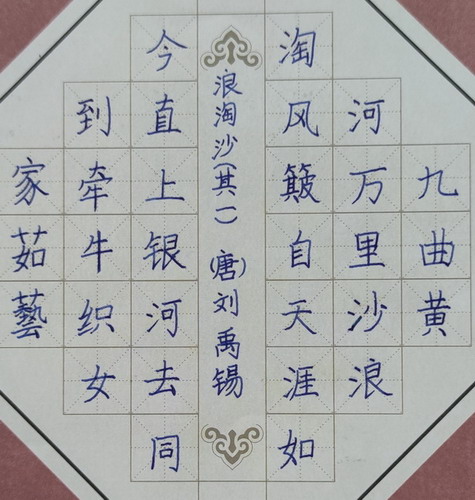 九曲黄
河万里沙浪
淘风簸自天涯如
浪淘沙(其一) (唐)刘禹锡
今直上银河去同
到牵牛织女
家茹藝